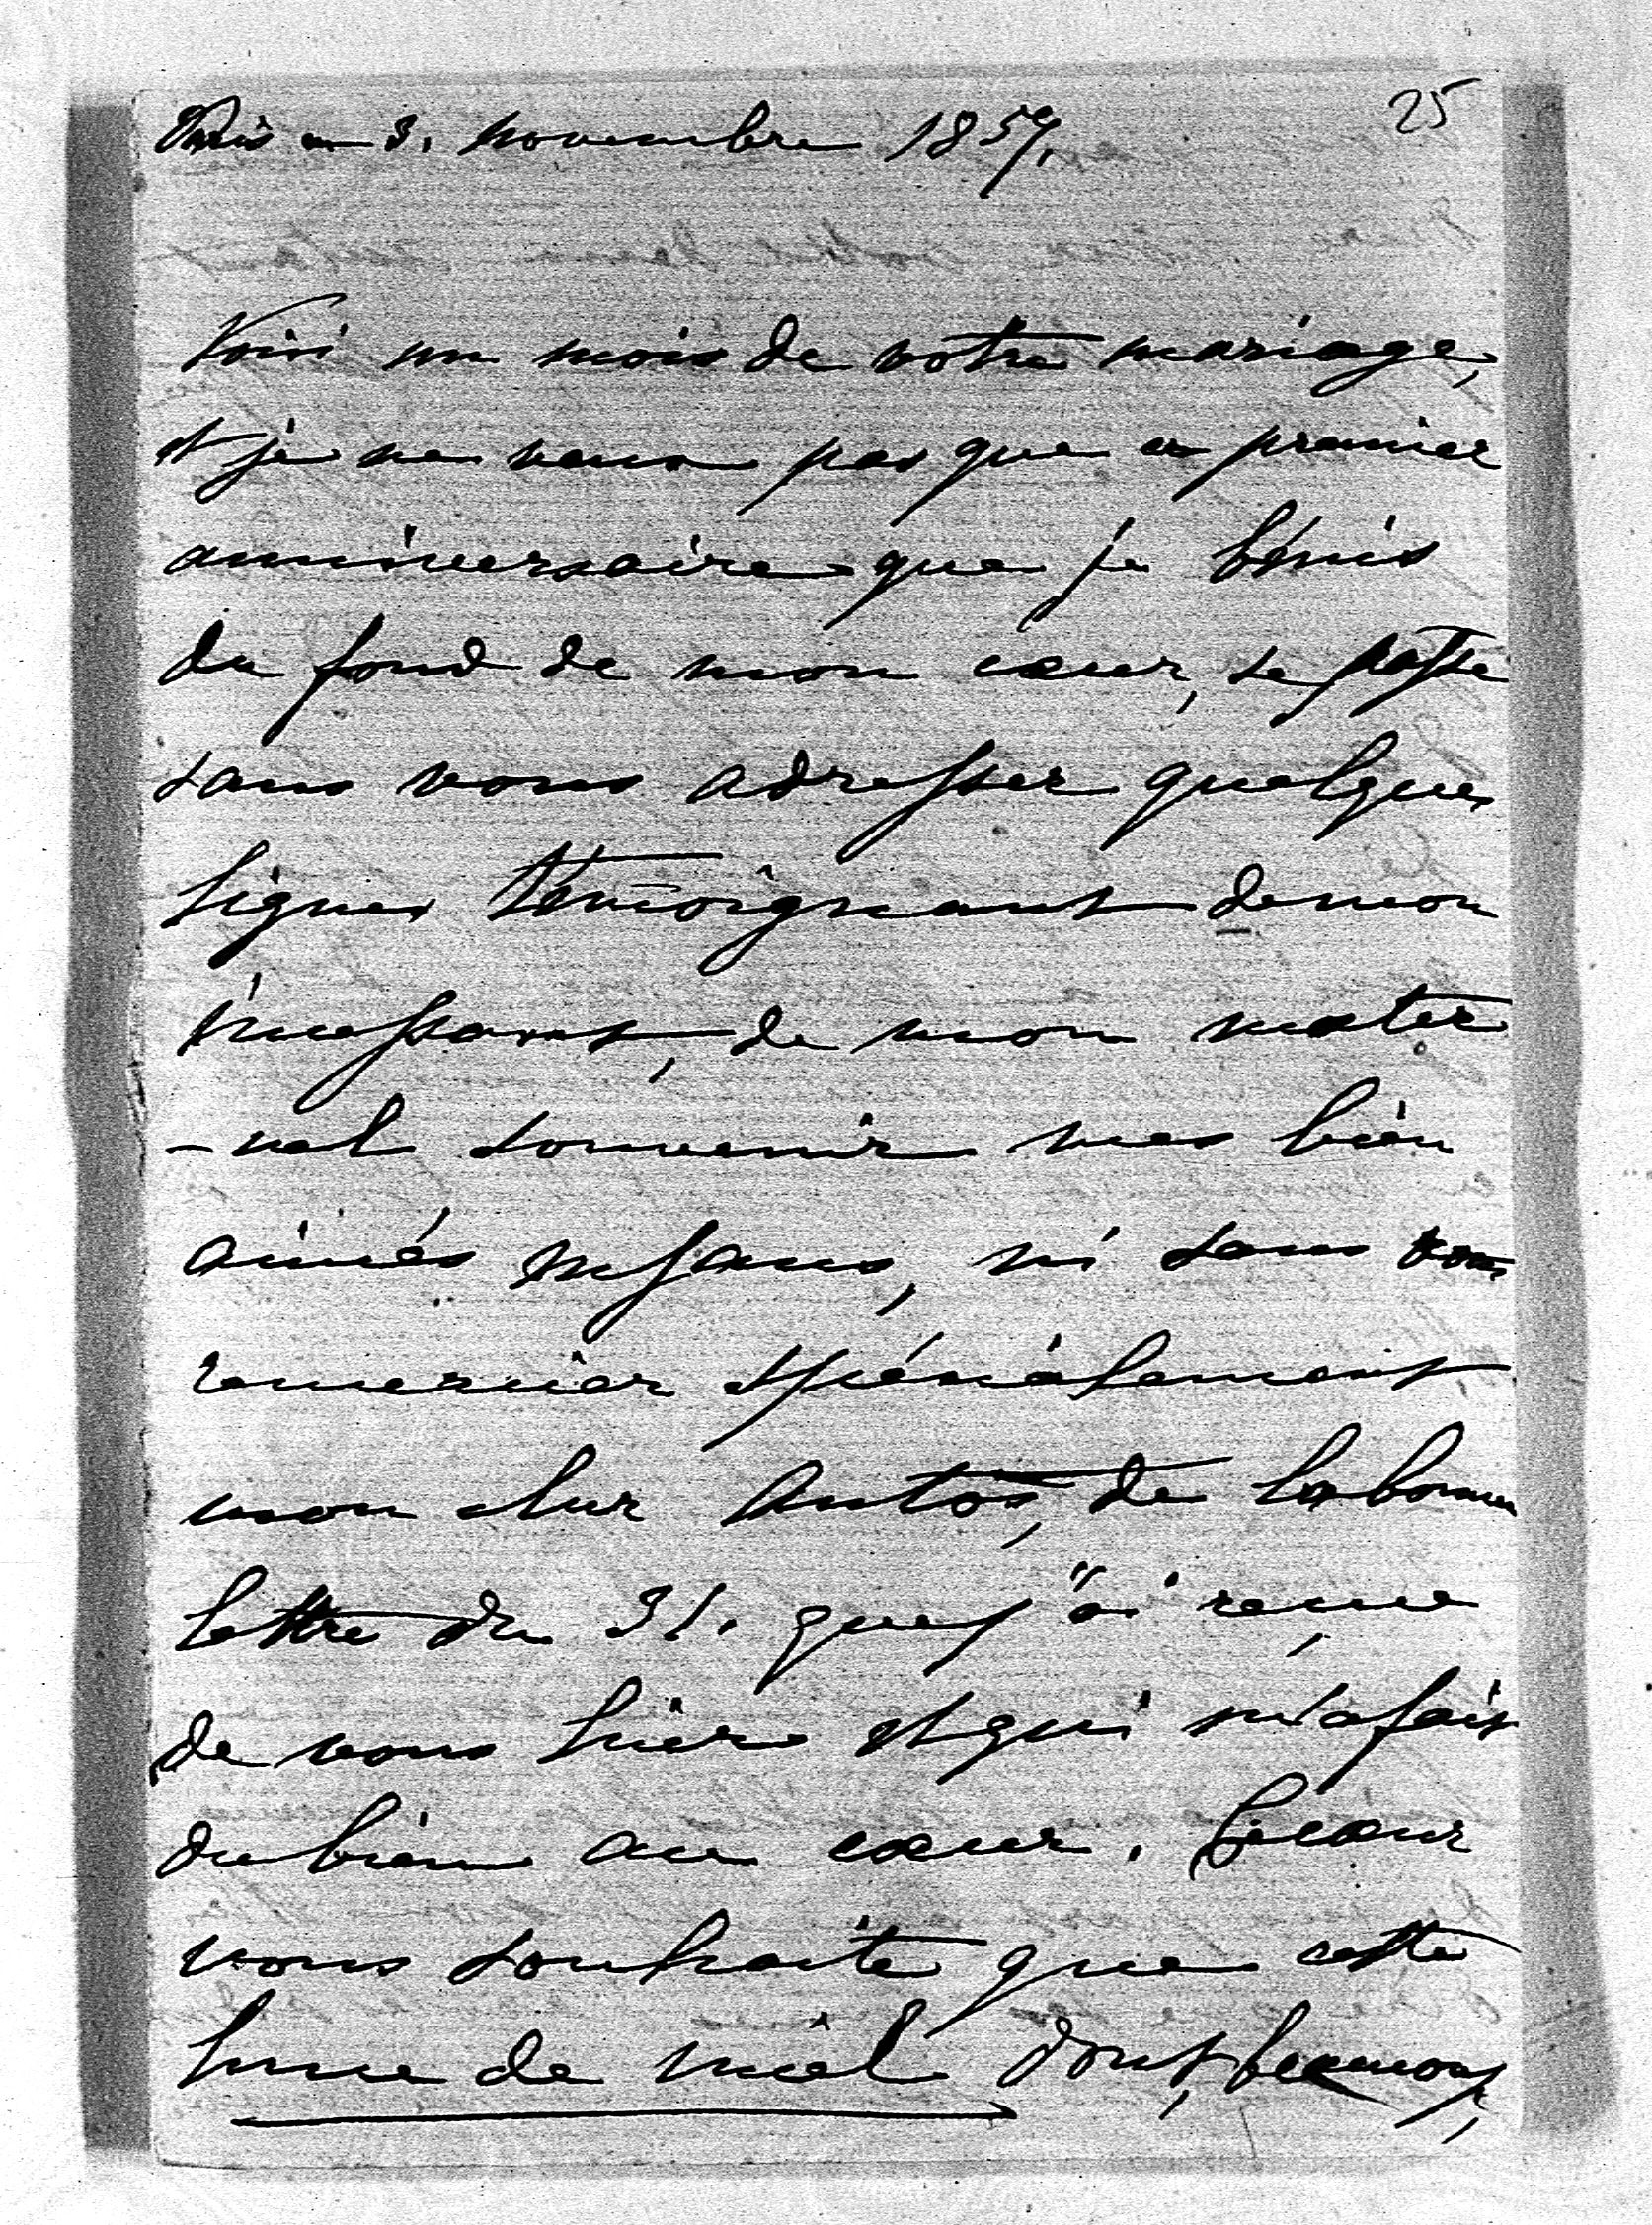 25
Paris ce 3. novembre 1857.
Voici un mois de votre mariage,
et je ne veux pas que ce premier
anniversaire que je bénis
du fond de mon cœur, se passe
sans vous adresser quelques
lignes témoignant de mon
incessant, de mon mater
-nel souvenir mes bien
aimés enfans, ni sans vous
remercier spécialement
mon cher Antos, de la bonne
lettre du 31. que j'ai reçue
de vous hière et qui m'a fait
du bien au cœur. Ce cœur
vous souhaite que cette
lune de miel dont,